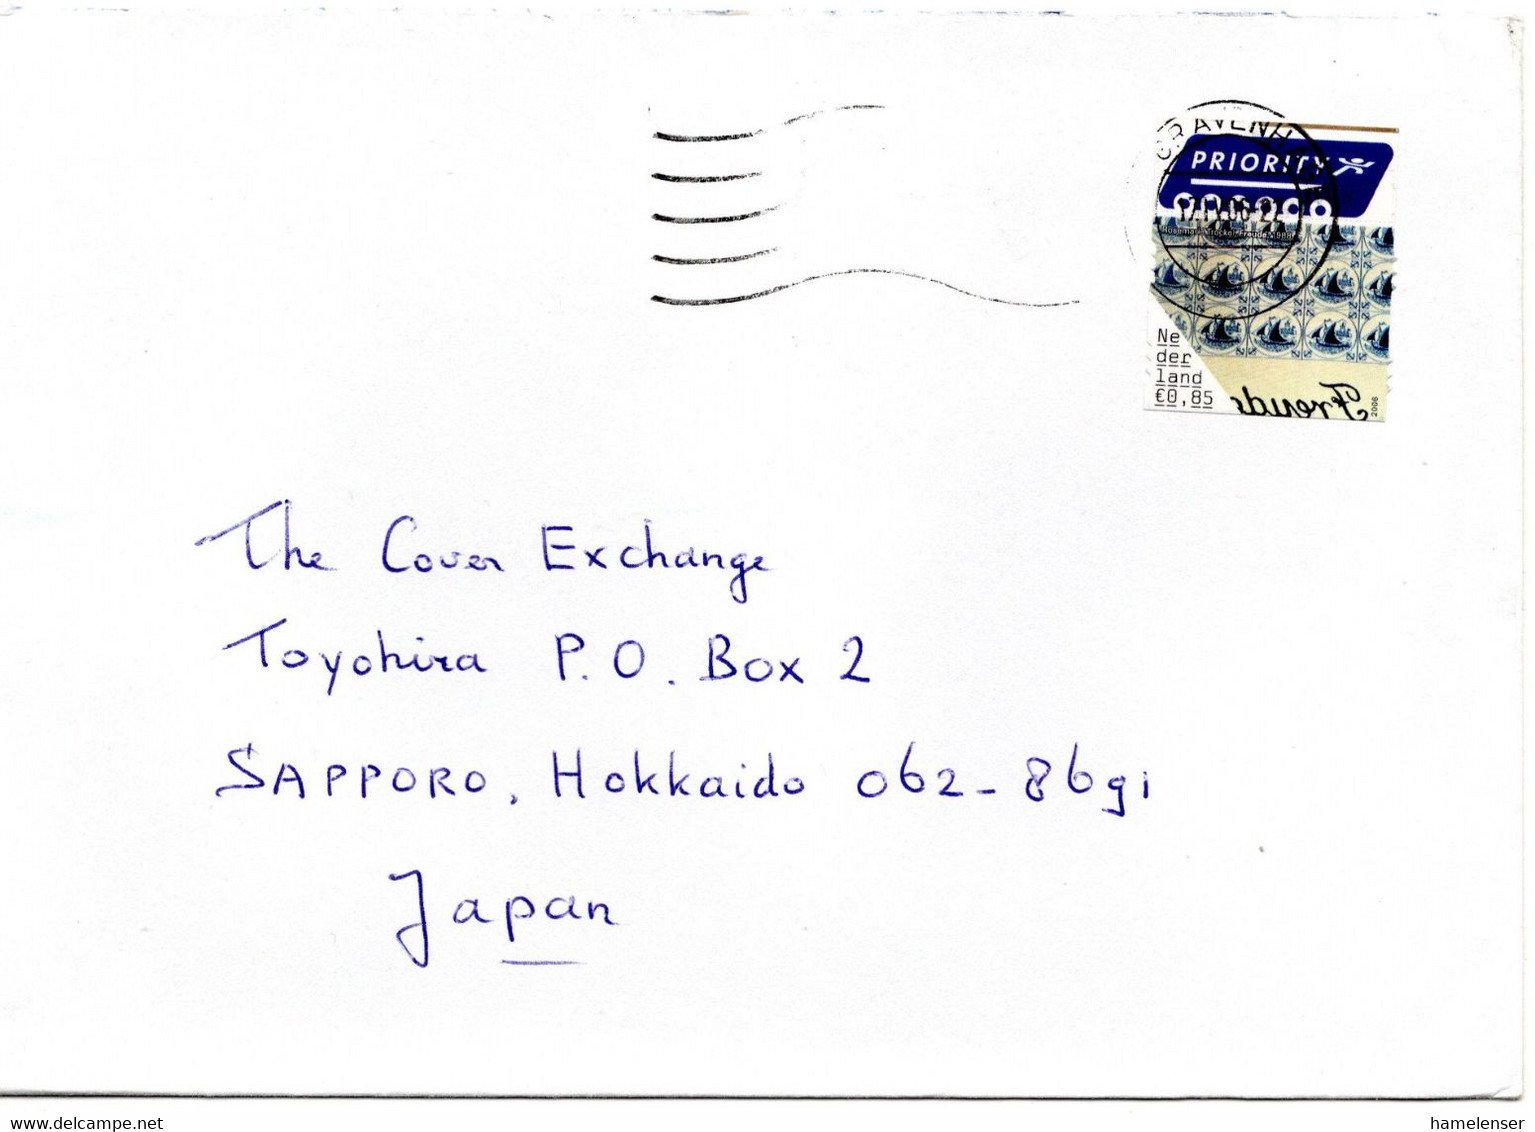 GRAVENHAGE
PRIORITY
17.11.06-22
Rosemarie Trockel, Freude, 1988
Ne
der
land
€0,85
Freude
2006
The Cover Exchange
Toyohira P.O. Box 2
SAPPORO, Hokkaido 062-8691
Japan
www.delcampe.net
hamelenser